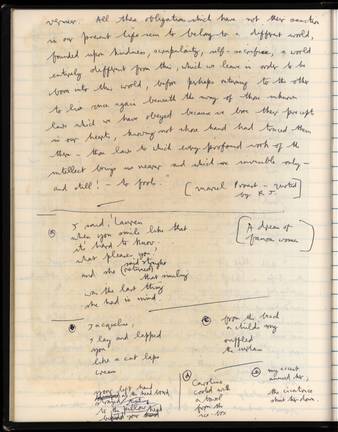 vermeer. All these obligations which have not their sanction
in our present life seem to belong to a different world,
founded upon kindness, scrupulosity, self-sacrifice, a world
entirely different from this, which we leave in order to be
born into this world, before perhaps returning to the other
to live once again beneath the sway of those unknown
laws which we have obeyed because we bore their precept
in our hearts, knowing not whose hand had traced them
there - those laws to which every profound work of the
intellect brings us nearer and which are invisible only -
and still! - to fools.
[Marcel Proust - quoted
by R. J.
I said, Lauren
when you smile like that
it's hard to know
what pleases you
and she said
(retained)
that smiling
was the last thing
she had in mind.
[A dream of
famous women]
Jacqueline,
I lay and lapped
you
like a cat laps
cream
your left hand
the pillow
from the head
a child's
ruffled
the
Caroline
cooled with
a towel
from the
ice-box
my accent
annoyed her,
the cicatrice